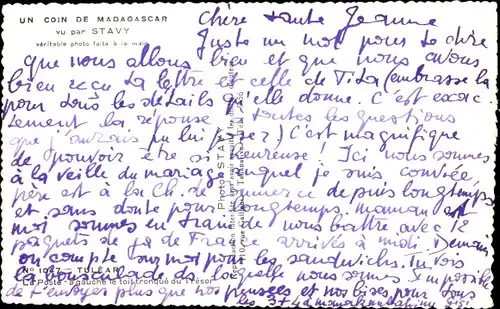 UN COIN DE MADAGASCAR
vu par STAVY
véritable photo faite à la main
Chère tante Jeanne
Juste un mot pour te dire
que nous allons bien et que nous avons
bien reçu ta lettre et celle de Tita (embrasse la
pour tous les détails qu'elle donne. C'est exac
tement la réponse toutes les questions
que j'aurais pu lui poser) C'est magnifique
de pouvoir être si heureuse! Ici nous sommes
à la veille du mariage auquel je suis conviée
père est à la Ch. de commerce depuis longtemps
et sans doute pour longtemps, maman et
moi sommes en train de nous battre avec 12
paquets de de France arrivés à midi. Demain
on compte sur moi pour les sandwichs. Tu vois
la bousculade ds laquelle nous sommes. Impossible
de t'envoyer plus que nos pensées et nos bises pour tous
les 3 + 4
Photo STAVY
No 1047 - TULÉAR
La Poste - à gauche le toit tronqué du Trésor